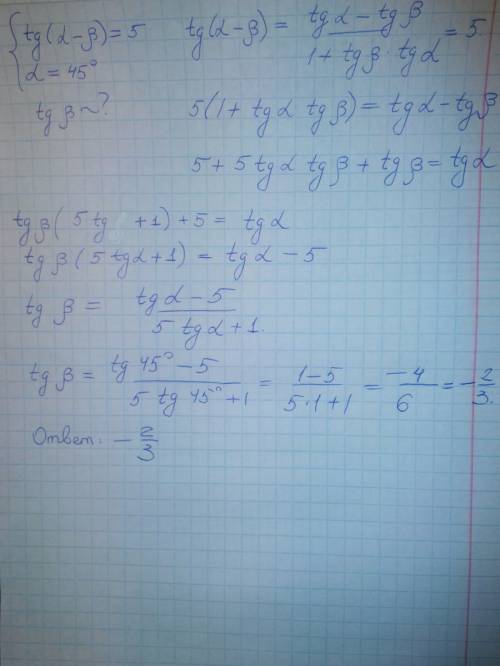 { tg(α-β)=5    tg(α-β) = (tgα - tgβ)/(1 + tgβ · tgα) = 5.
{ α = 45°
tg β ~ ?    5(1 + tgα tgβ) = tgα - tgβ
5 + 5 tgα tgβ + tgβ = tgα
tgβ( 5 tg   +1) + 5 = tgα
tgβ(5 tgα+1) = tgα - 5
tg β = (tgα - 5)/(5 tgα + 1.)
tg β = (tg 45° - 5)/(5 tg 45° + 1) = (1-5)/(5·1+1) = (-4)/6 = -2/3.
Ответ: - 2/3